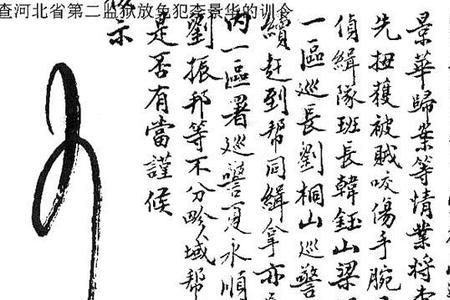 查河北省第二监狱放免犯李景华的训令
景華歸案等情業將李
先扭獲被賊咬傷手腕
偵緝隊班長韓鈺山梁
一區巡長劉桐山巡警
續赶到帮同緝拿亦
内一區署巡警夏永順
劉振邦等不分畛域帮
是否有當謹候
示